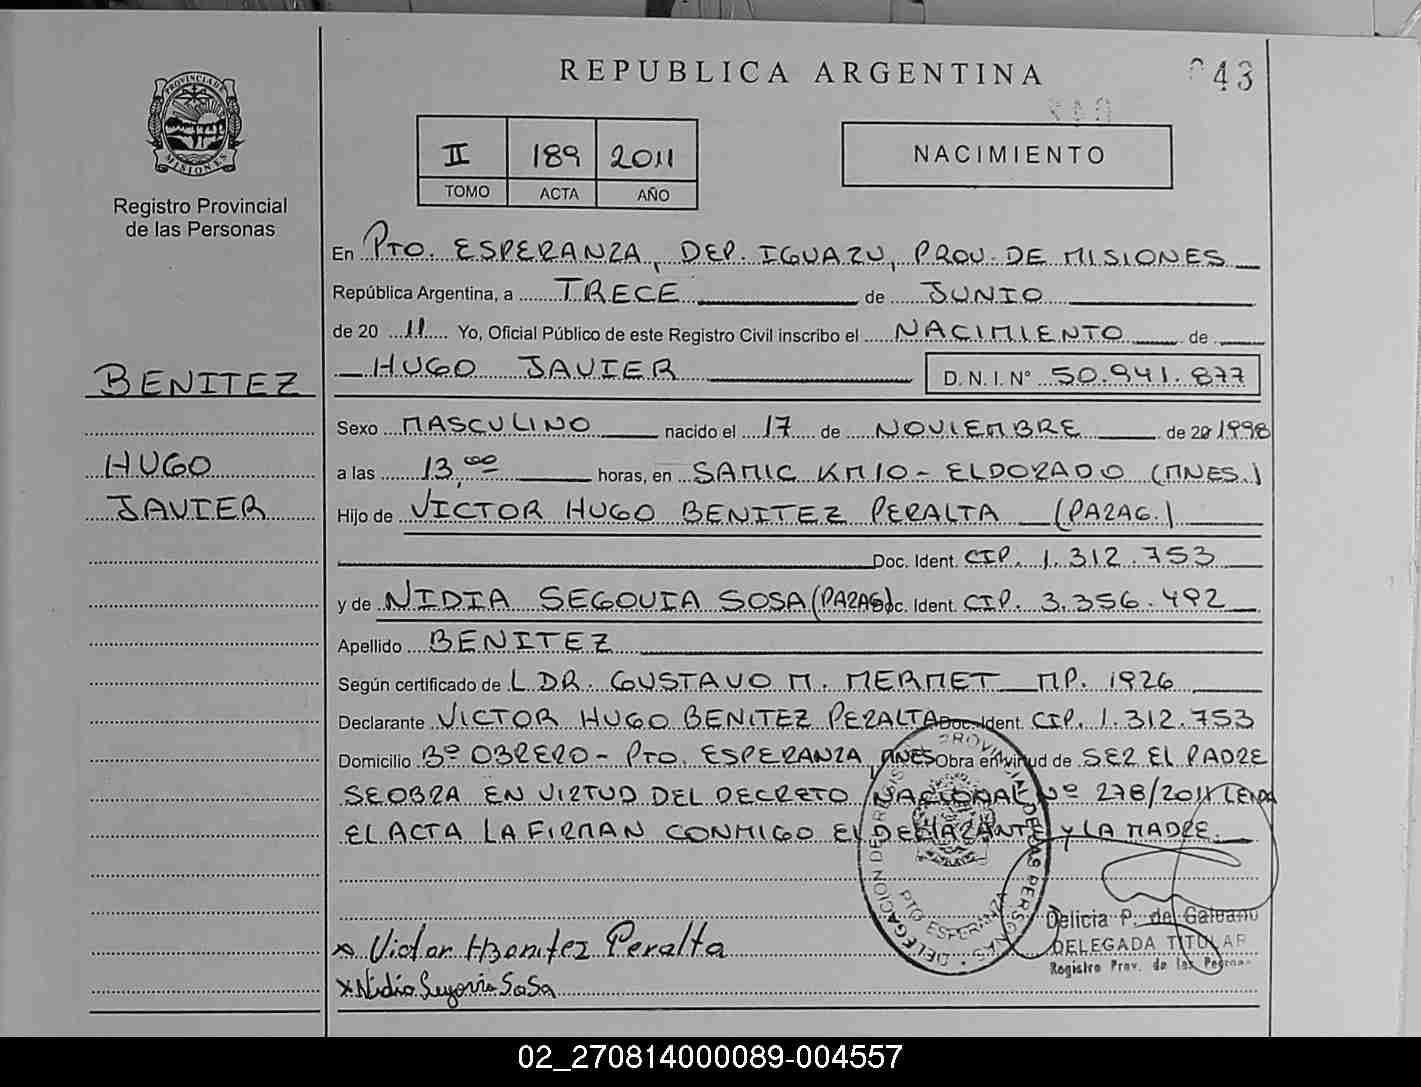 REPUBLICA ARGENTINA
043
PROVINCIA DE
MISIONES
Registro Provincial
de las Personas
II 189 2011
TOMO ACTA AÑO
NACIMIENTO
En PTO. ESPERANZA, DEP. IGUAZU, PROV. DE MISIONES
República Argentina, a TRECE de JUNIO
de 20 11 Yo, Oficial Público de este Registro Civil inscribo el NACIMIENTO de
HUGO JAVIER D. N. I. N° 50.941.877
BENITEZ
HUGO
JAVIER
Sexo MASCULINO nacido el 17 de NOVIEMBRE de 1998
a las 13,00 horas, en SAMIC KM10 - ELDORADO (MNES.)
Hijo de VICTOR HUGO BENITEZ PERALTA (PARAG.)
Doc. Ident. CIP. 1.312.753
y de NIDIA SEGOVIA SOSA (PARAG) Doc. Ident. CIP. 3.356.492
Apellido BENITEZ
Según certificado de L DR. GUSTAVO M. MERMET MP. 1926
Declarante VICTOR HUGO BENITEZ PERALTA Doc. Ident. CIP. 1.312.753
Domicilio Bº OBRERO - PTO. ESPERANZA, MNES Obra en virtud de SER EL PADRE
SE OBRA EN VIRTUD DEL DECRETO NACIONAL Nº 278/2011 LEIDA
EL ACTA LA FIRMAN CONMIGO EL DECLARANTE Y LA MADRE.
DELEGACION DE REGISTRO PROVINCIAL DE LAS PERSONAS
PTO ESPERANZA
Delicia P. de Galeano
DELEGADA TITULAR
Registro Prov. de las Personas
x Victor H Benitez Peralta
x Nidia Segovia SoSa
02_270814000089-004557